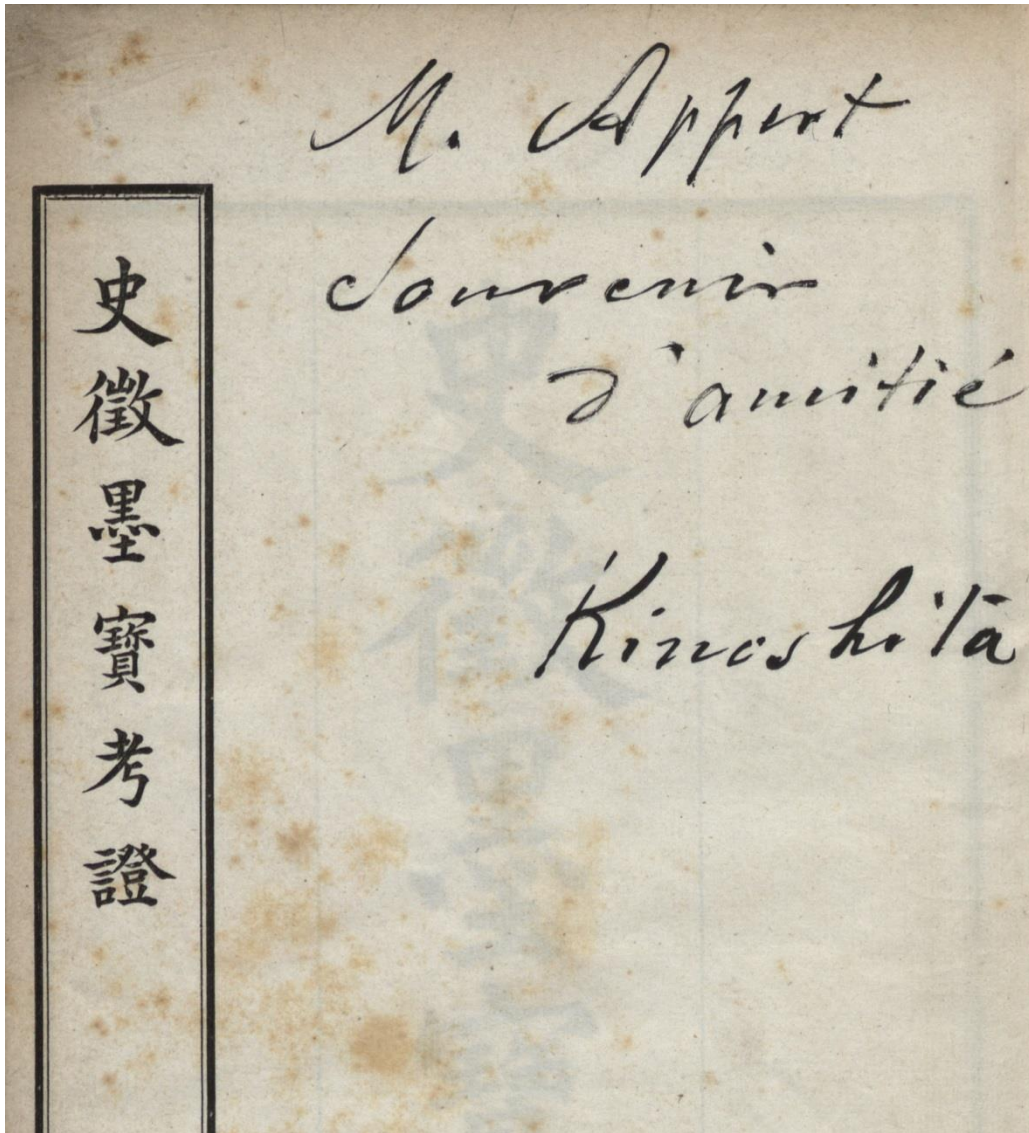 M. Appert
Souvenir
d'amitié
Kinoshita
史徵墨寶考證